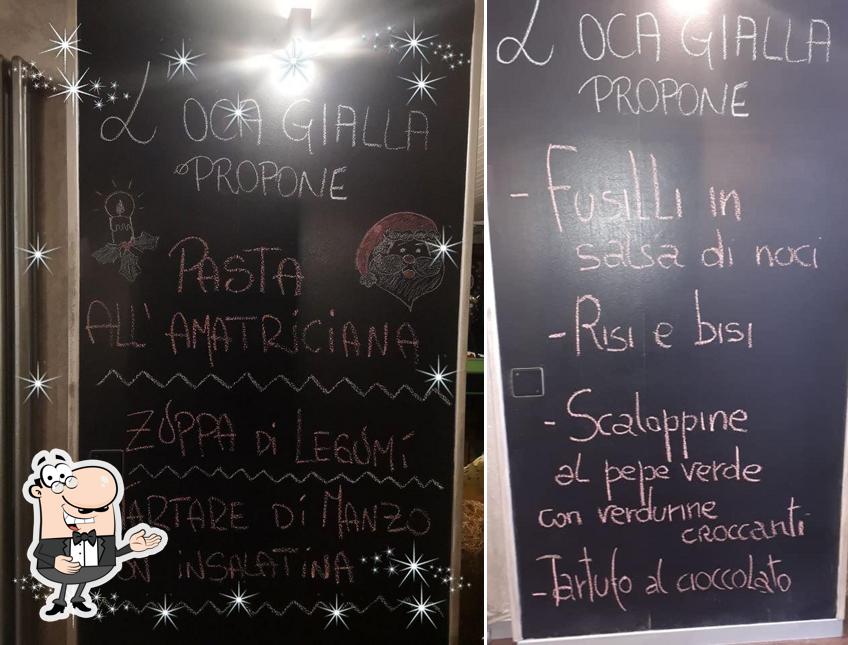 L' OCA GIALLA
PROPONE
PASTA
ALL' AMATRICIANA
ZUPPA DI LEGUMI
TARTARE DI MANZO
CON INSALATINA
L' OCA GIALLA
PROPONE
- FUSILLI in
salsa di noci
- Risi e bisi
- Scaloppine
al pepe verde
con verdurine
CROCCANTI
- Tartufo al cioccolato